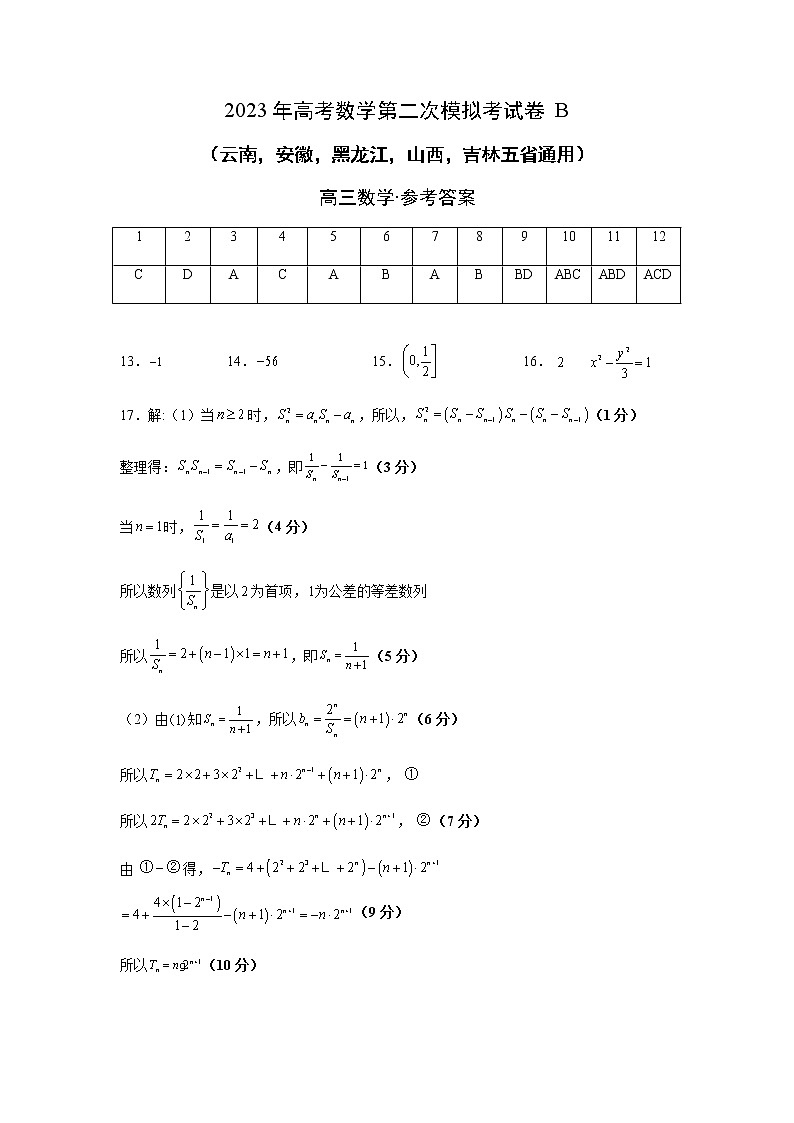 2023 年高考数学第二次模拟考试卷 B
（云南，安徽，黑龙江，山西，吉林五省通用）
高三数学·参考答案
1 2 3 4 5 6 7 8 9 10 11 12
C D A C A B A B BD ABC ABD ACD
13．−1 14．−56 15．(0,1/2] 16． 2 x²−y²/3=1
17．解:（1）当n≥2时，Sₙ²=aₙSₙ−aₙ，所以，Sₙ²=(Sₙ−Sₙ₋₁)Sₙ−(Sₙ−Sₙ₋₁)（1 分）
整理得：SₙSₙ₋₁=Sₙ₋₁−Sₙ，即1/Sₙ−1/Sₙ₋₁=1（3 分）
当n=1时，1/S₁=1/a₁=2（4 分）
所以数列{1/Sₙ}是以2为首项，1为公差的等差数列
所以1/Sₙ=2+(n−1)×1=n+1，即Sₙ=1/(n+1)（5 分）
（2）由(1)知Sₙ=1/(n+1)，所以bₙ=2ⁿ/Sₙ=(n+1)·2ⁿ（6 分）
所以Tₙ=2×2+3×2²+∟+n·2ⁿ⁻¹+(n+1)·2ⁿ， ①
所以2Tₙ=2×2²+3×2³+∟+n·2ⁿ+(n+1)·2ⁿ⁺¹， ②（7 分）
由 ①−②得，−Tₙ=4+(2²+2³+∟+2ⁿ)−(n+1)·2ⁿ⁺¹
=4+4×(1−2ⁿ⁻¹)/(1−2)−(n+1)·2ⁿ⁺¹=−n·2ⁿ⁺¹（9 分）
所以Tₙ=ng2ⁿ⁺¹（10 分）